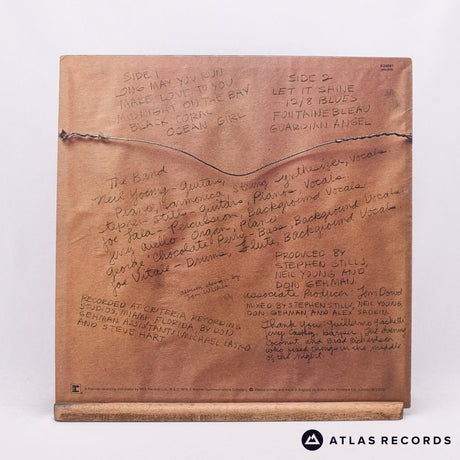 SIDE 1
LONG MAY YOU RUN
MAKE LOVE TO YOU
MIDNIGHT ON THE BAY
BLACK CORAL
OCEAN GIRL
SIDE 2
LET IT SHINE
12/8 BLUES
FONTAINEBLEAU
GUARDIAN ANGEL
The Band
Neil Young - Guitar,
Piano, Harmonica, String Synthesizer, Vocals.
Stephen Stills - Guitars, Piano, Vocals.
Joe Lala - Percussion, Background Vocals
Jerry Aiello - Organ, Piano
George "Chocolate" Perry - Bass, Background Vocals
Joe Vitale - Drums, Flute, Background Vocals.
PRODUCED BY
STEPHEN STILLS,
NEIL YOUNG AND
DON GEHMAN.
Associate Producer: Tom Dowd
MIXED BY STEPHEN STILLS, NEIL YOUNG,
DON GEHMAN AND ALEX SADKIN
RECORDED AT CRITERIA RECORDING
STUDIOS, MIAMI, FLORIDA, BY DON
GEHMAN. ASSISTANT: MICHAEL LASKO
AND STEVE HART
Thank You: Guillermo
the
Coconut who
who used in the middle
of the night.
ATLAS RECORDS